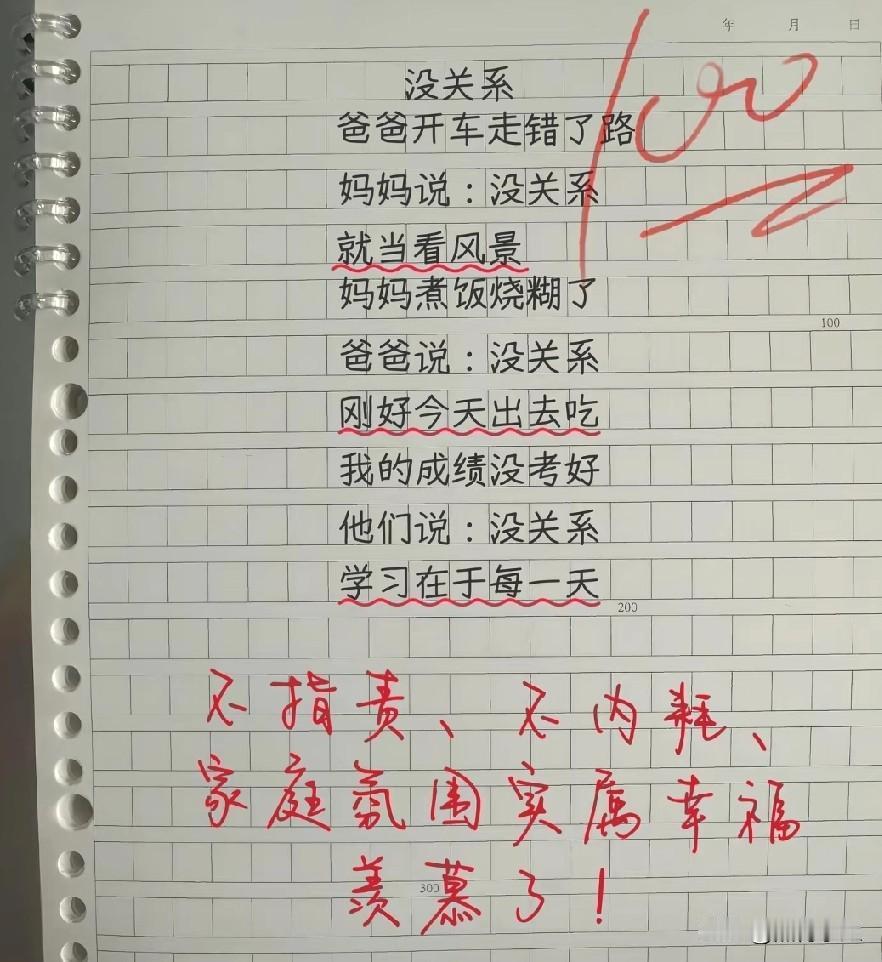 年 月 日
100
没关系
爸爸开车走错了路
妈妈说：没关系
就当看风景
妈妈煮饭烧糊了
100
爸爸说：没关系
刚好今天出去吃
我的成绩没考好
他们说：没关系
学习在于每一天
200
不指责、不内耗、
家庭氛围实属幸福
300
羡慕了！